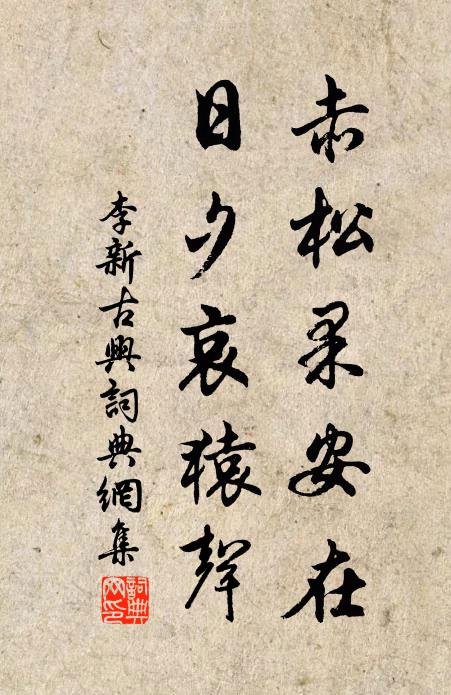 赤松果安在
日夕哀猿聲
李新古興詞典網集
詞典網印